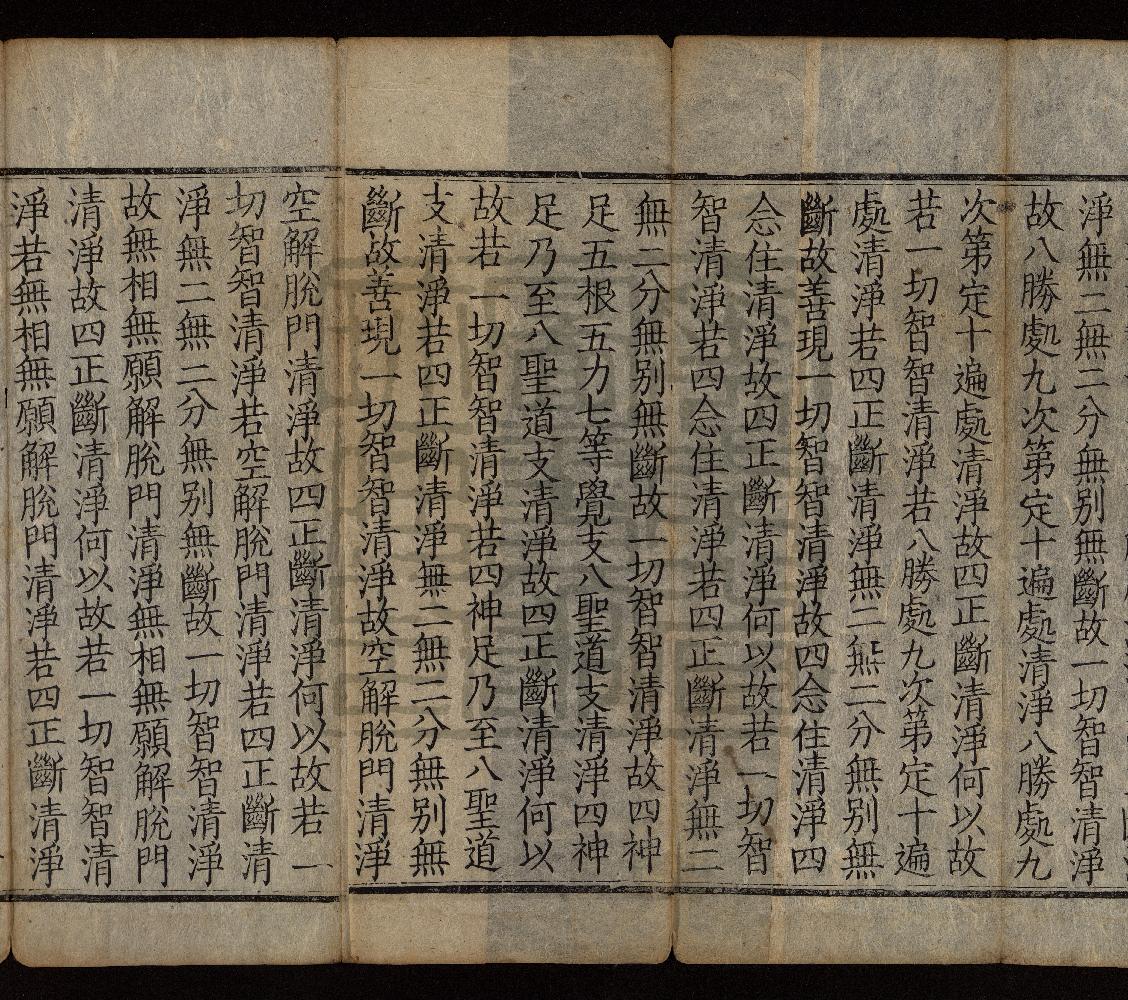 淨無二無二分無别無斷故一切智智清淨
故八勝處九次第定十遍處清淨八勝處九
次第定十遍處清淨故四正斷清淨何以故
若一切智智清淨若八勝處九次第定十遍
處清淨若四正斷清淨無二無二分無别無
斷故善現一切智智清淨故四念住清淨四
念住清淨故四正斷清淨何以故若一切智
智清淨若四念住清淨若四正斷清淨無二
無二分無别無斷故一切智智清淨故四神
足五根五力七等覺支八聖道支清淨四神
足乃至八聖道支清淨故四正斷清淨何以
故若一切智智清淨若四神足乃至八聖道
支清淨若四正斷清淨無二無二分無别無
斷故善現一切智智清淨故空解脫門清淨
空解脫門清淨故四正斷清淨何以故若一
切智智清淨若空解脫門清淨若四正斷清
淨無二無二分無别無斷故一切智智清淨
故無相無願解脫門清淨無相無願解脫門
清淨故四正斷清淨何以故若一切智智清
淨若無相無願解脫門清淨若四正斷清淨